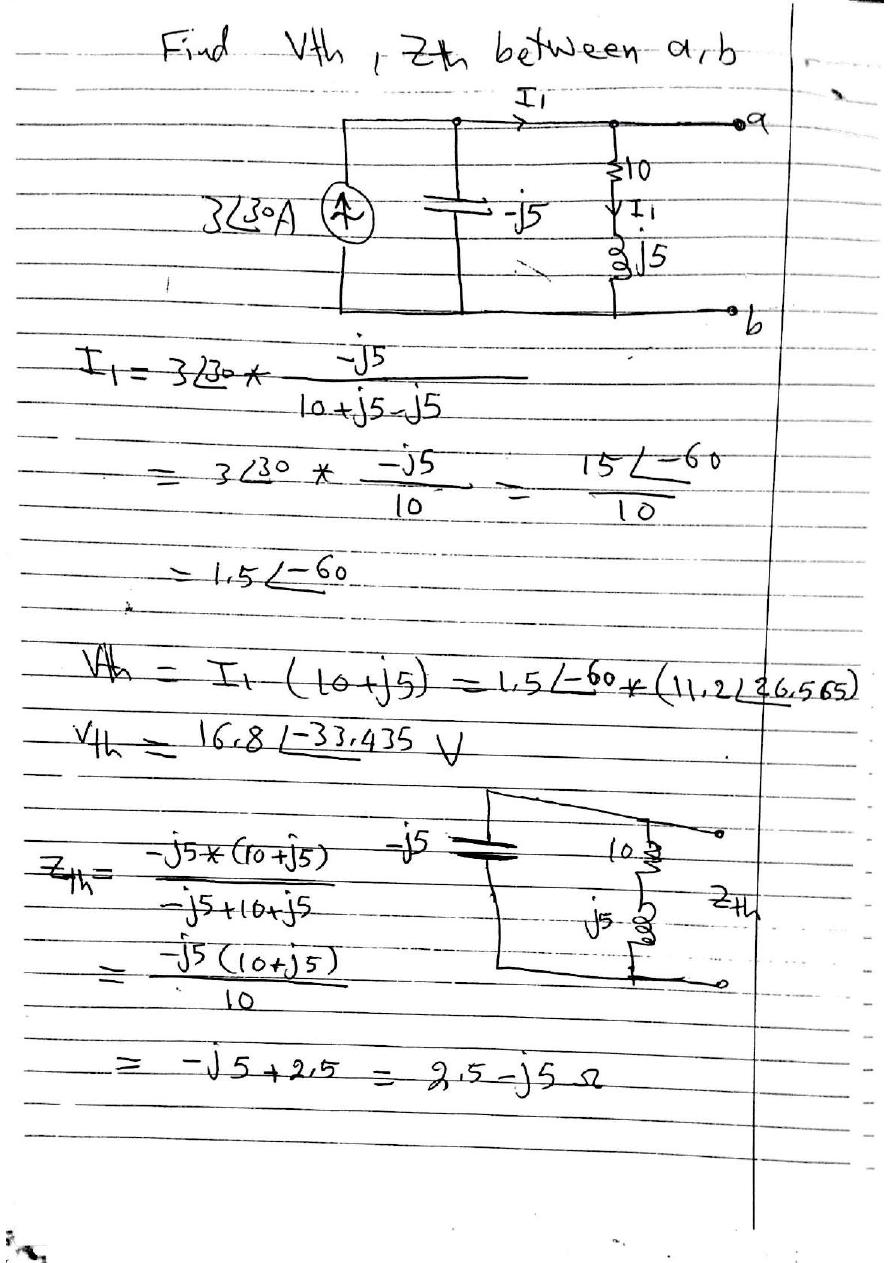 Find Vth, Zth between a,b
I1
a
10
3∠30A
-j5
I1
j5
b
I1 = 3∠30 * -j5 / 10+j5-j5
= 3∠30 * -j5 / 10 = 15∠-60 / 10
= 1.5∠-60
Vth = I1 (10+j5) = 1.5∠-60 * (11.2∠26.565)
Vth = 16.8∠-33.435 V
Zth = -j5*(10+j5) / -j5+10+j5
-j5
10
j5
Zth
= -j5(10+j5) / 10
= -j5+2.5 = 2.5-j5 Ω